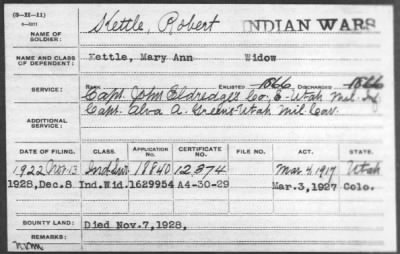 (3-II-11)
NAME OF SOLDIER: Kettle, Robert INDIAN WARS
NAME AND CLASS OF DEPENDENT: Kettle, Mary Ann Widow
SERVICE: RANK ENLISTED 1866 DISCHARGED 1866
Capt. John Eldredge's Co. E- Utah Mil. Inf
ADDITIONAL SERVICE: Capt. Alva A. Green's Utah Mil. Cav.
DATE OF FILING. CLASS. APPLICATION NO. CERTIFICATE NO. FILE NO. ACT. STATE.
1922 Nov. 13 Ind Sur 18840 12,874 Mar. 4, 1917 Utah
1928, Dec. 8 Ind. Wid. 1629954 A4-30-29 Mar. 3, 1927 Colo.
BOUNTY LAND: Died Nov. 7, 1928,
REMARKS: